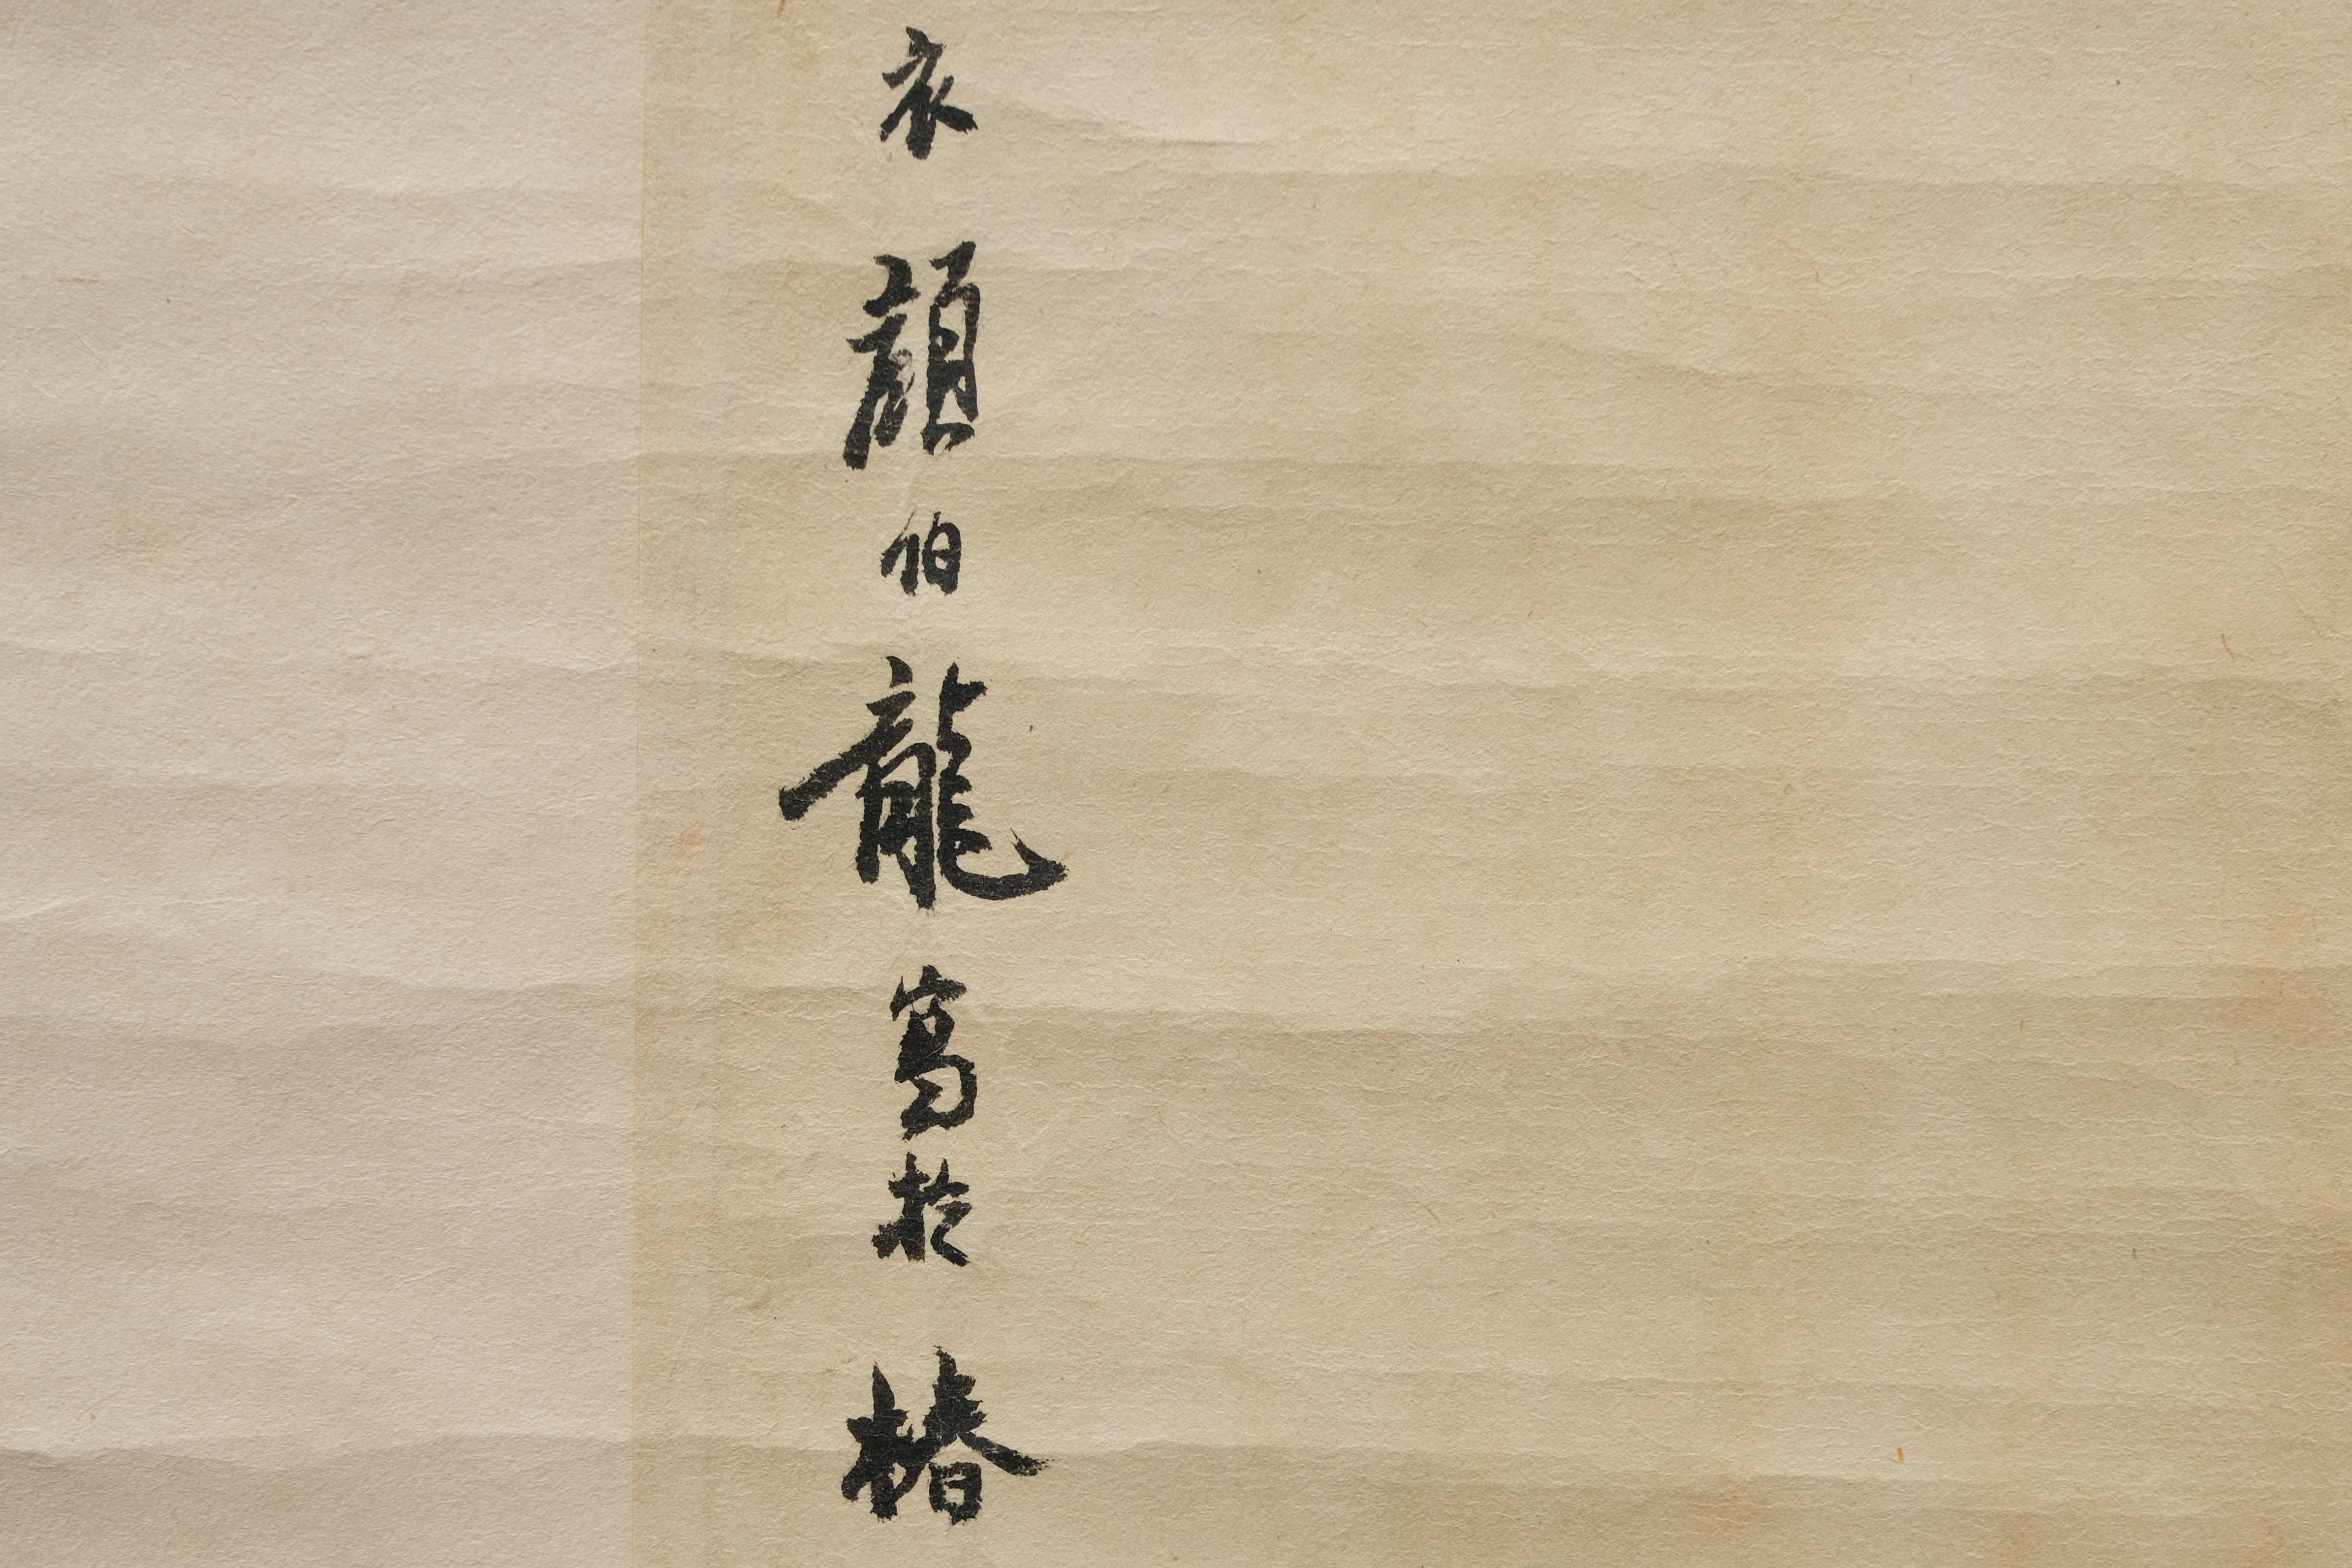 衣顔伯龍寫於椿